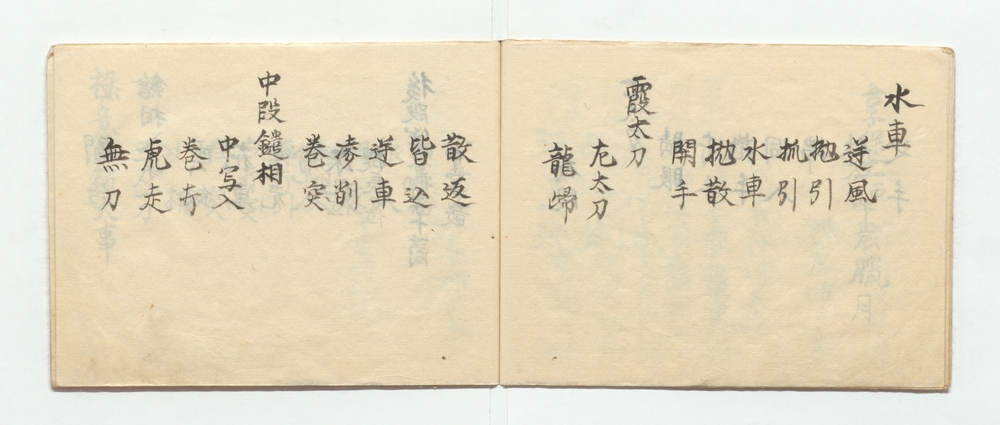 水車
逆風
抛引
抗引
水車
抛散
開手
霞太刀
左太刀
龍帰
散返
皆込
逆車
凌削
巻突
中段鑓相
中写入
巻打
虎走
無刀